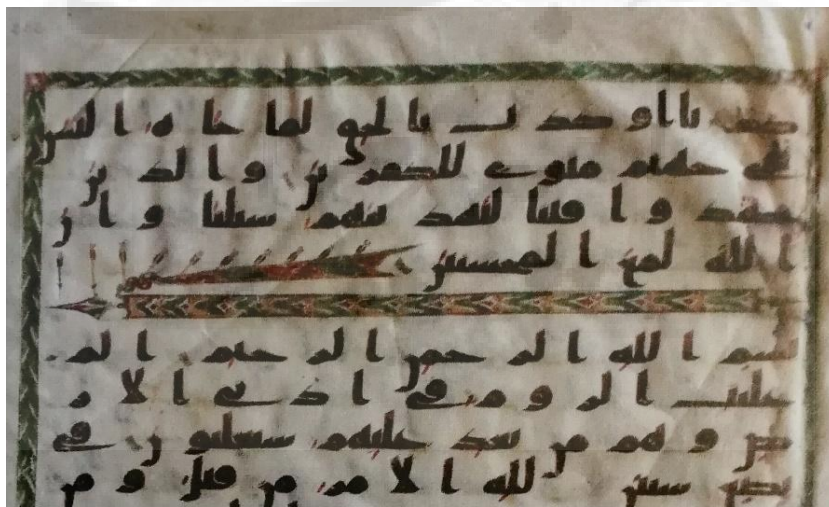 كذبا او كذب بالحق لما جاه اليس
في جهنم مثوى للكفرين والذين
جهدوا فينا لنهدينهم سبلنا وان
الله لمع المحسنين
بسم الله الرحمن الرحيم الم
غلبت الروم في ادنى الار
ض وهم من بعد غلبهم سيغلبون في
بضع سنين لله الامر من قبل وم